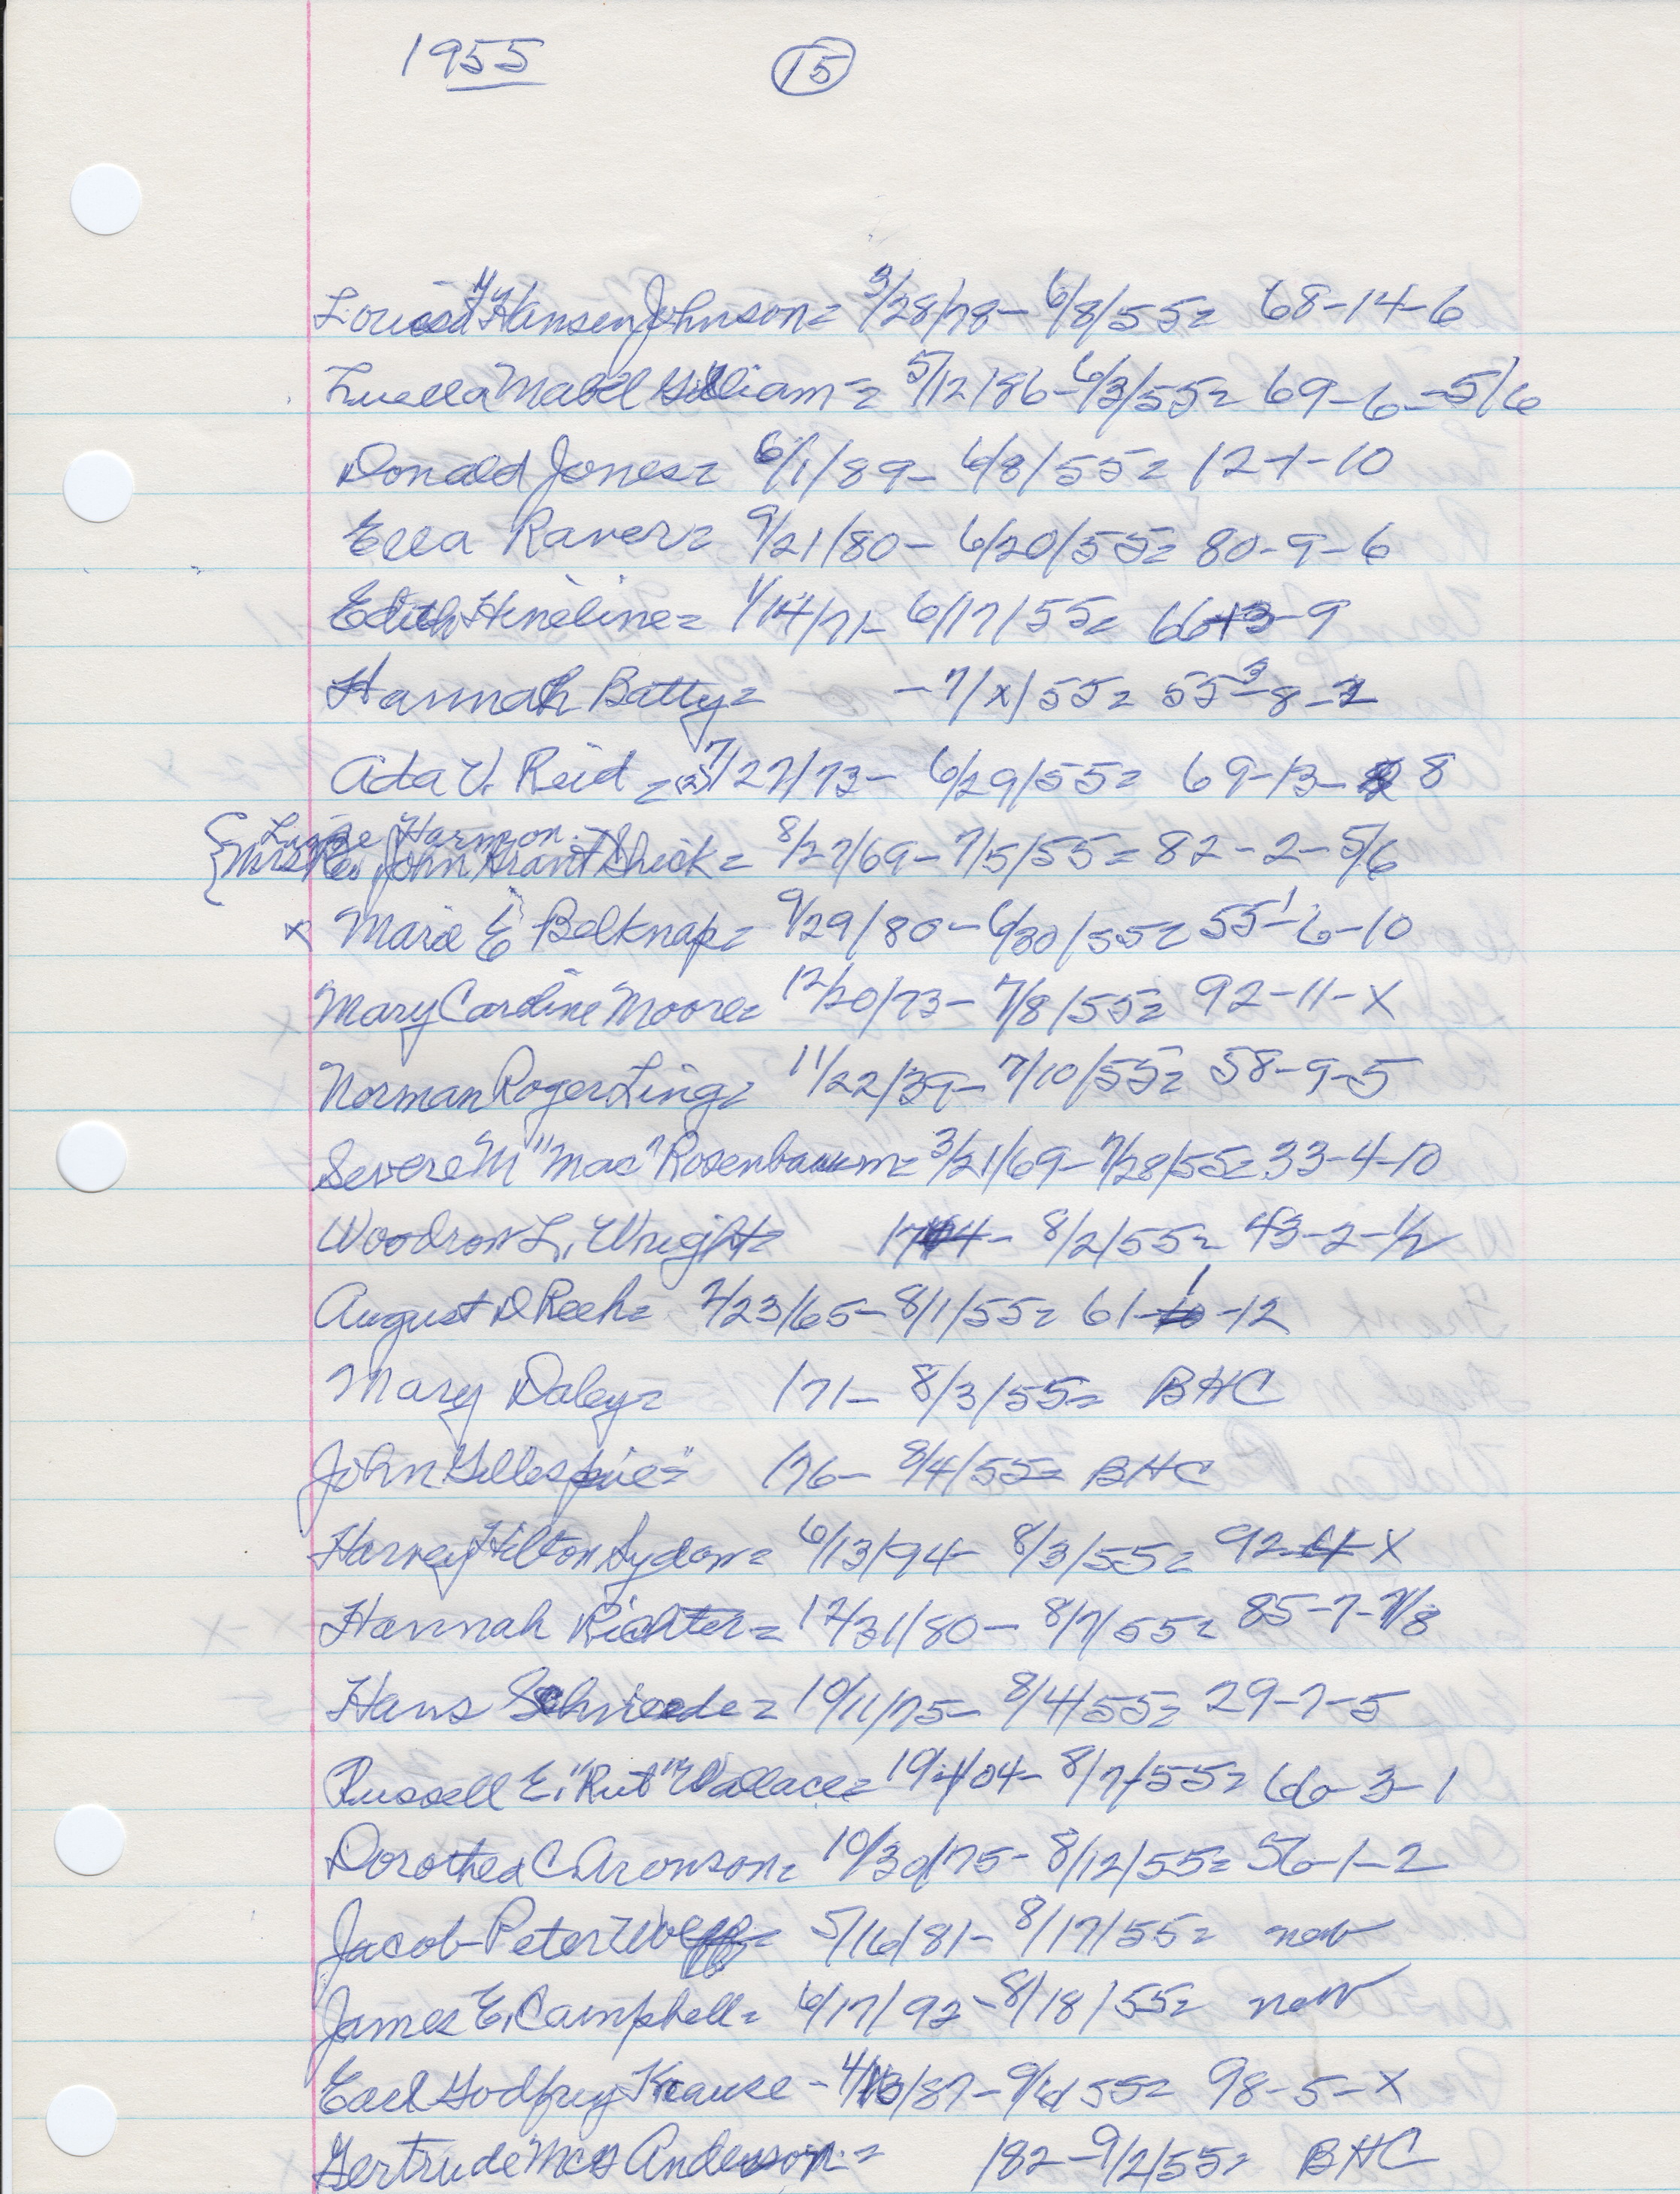 1955 15
Louisa M Hansen Johnson = 3/28/78 - 6/8/55 = 68-14-6
Luella Mabel Gilliam = 5/12/86 - 6/3/55 = 69-6-5/6
Donald Jones = 6/1/89 - 6/8/55 = 12-1-10
Ella Raver = 9/21/80 - 6/20/55 = 80-9-6
Edith Hineline = 1/14/71 - 6/17/55 = 66-13-9
Hannah Batty = - 7/x/55 = 55-8-2
Ada V. Reid = 7/27/73 - 6/29/55 = 69-13-8
Louise Harmon
Mrs Rev John Grant Shick = 8/27/69 - 7/5/55 = 82-2-5/6
x Marie E Belknap = 9/29/80 - 6/30/55 = 55-1-6-10
Mary Caroline Moore = 12/20/73 - 7/8/55 = 92-11-X
Norman Roger Ling = 11/22/39 - 7/10/55 = 58-9-5
Severe M "Mac" Rosenbaum = 3/21/69 - 7/28/55 = 33-4-10
Woodrow L. Wright = - 8/2/55 = 43-2-1/2
August D Reeh = 2/23/65 - 8/1/55 = 61-1-12
Mary Daley = /71 - 8/3/55 = BHC
John Gillespie = /76 - 8/4/55 = BHC
Harvey Hilton Lydon = 6/13/94 - 8/3/55 = 92-4-X
Hannah Richter = 12/31/80 - 8/7/55 = 85-7-7/8
Hans Schriede = 10/11/75 - 8/4/55 = 29-7-5
Russell E. "Rut" Wallace = 10/4/04 - 8/7/55 = 66-3-1
Dorothea C Aronson = 10/30/75 - 8/12/55 = 56-1-2
Jacob Peter Wolff = 5/16/81 - 8/17/55 = new
James E. Campbell = 6/17/92 - 8/18/55 = new
Earl Godfrey Krause - 4/13/87 - 9/ 55 = 98-5-X
Gertrude Anderson = /82 - 9/2/55 = BHC